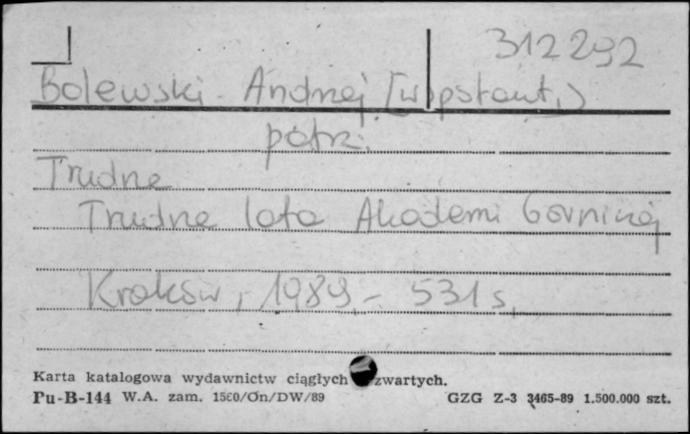 312292
Bolewski Andrzej (współaut.)
patrz:
Trudne
Trudne lata Akademii Górniczej
Kraków, 1989. - 531 s.
Karta katalogowa wydawnictw ciągłych zwartych.
Pu-B-144 W.A. zam. 1560/On/DW/89 GZG Z-3 3465-89 1.500.000 szt.